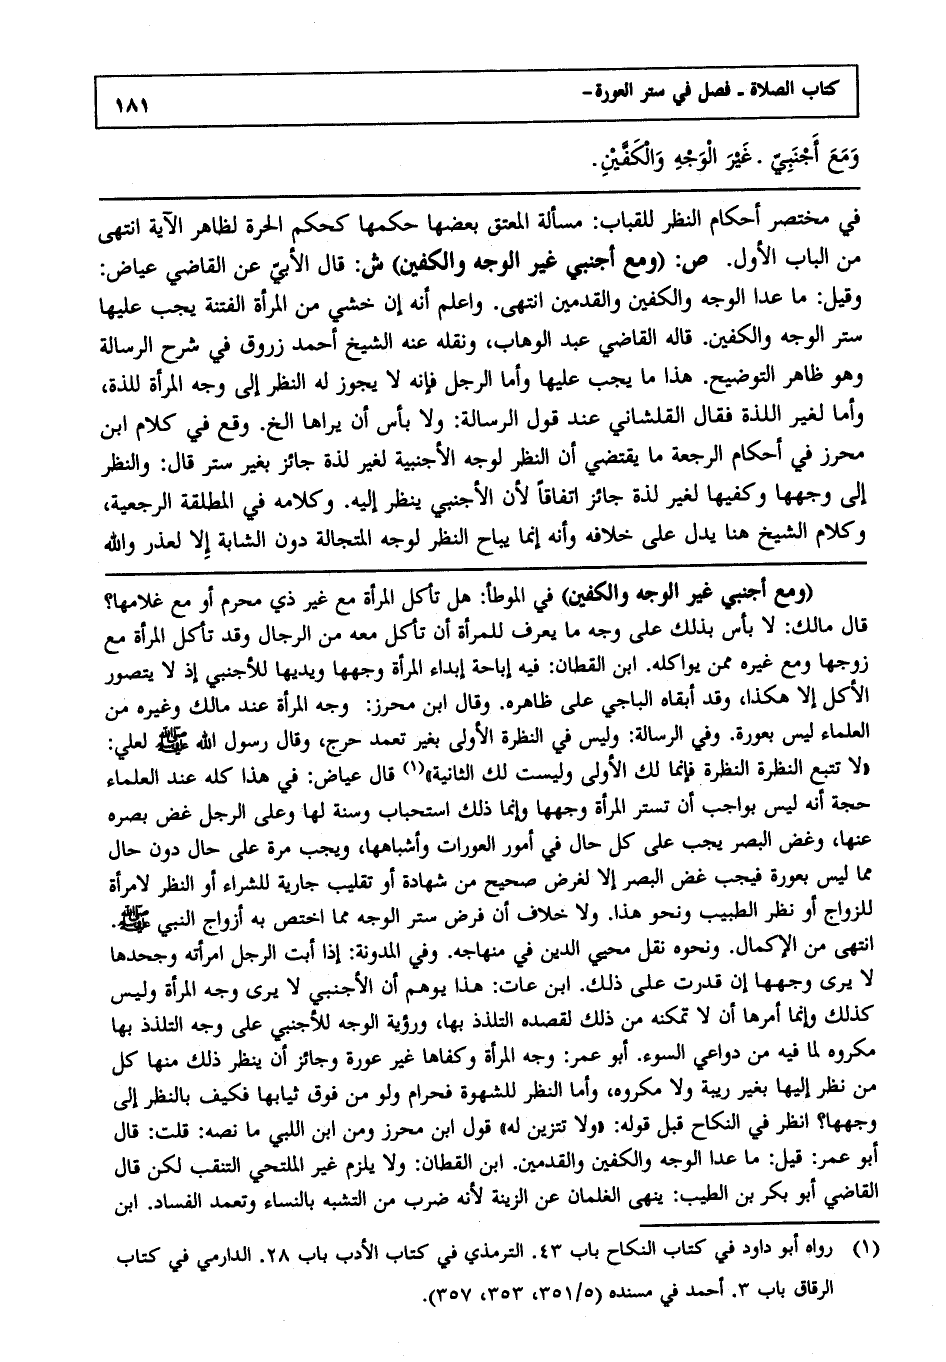 كتاب الصلاة ـ فصل في ستر العورة-
١٨١
وَمَعَ أَجْنَبِيّ . غَيْرَ الْوَجْهِ وَالْكَفَّيْنِ.
في مختصر أحكام النظر للقباب: مسألة المعتق بعضها حكمها كحكم الحرة لظاهر الآية انتهى
من الباب الأول. ص: (ومع أجنبي غير الوجه والكفين) ش: قال الأبيّ عن القاضي عياض:
وقيل: ما عدا الوجه والكفين والقدمين انتهى. واعلم أنه إن خشي من المرأة الفتنة يجب عليها
ستر الوجه والكفين. قاله القاضي عبد الوهاب، ونقله عنه الشيخ أحمد زروق في شرح الرسالة
وهو ظاهر التوضيح. هذا ما يجب عليها وأما الرجل فإنه لا يجوز له النظر إلى وجه المرأة للذة،
وأما لغير اللذة فقال القلشاني عند قول الرسالة: ولا بأس أن يراها الخ. وقع في كلام ابن
محرز في أحكام الرجعة ما يقتضي أن النظر لوجه الأجنبية لغير لذة جائز بغير ستر قال: والنظر
إلى وجهها وكفيها لغير لذة جائز اتفاقاً لأن الأجنبي ينظر إليه. وكلامه في المطلقة الرجعية،
وكلام الشيخ هنا يدل على خلافه وأنه إنما يباح النظر لوجه المتجالة دون الشابة إلا لعذر والله
(ومع أجنبي غير الوجه والكفين) في الموطأ: هل تأكل المرأة مع غير ذي محرم أو مع غلامها؟
قال مالك: لا بأس بذلك على وجه ما يعرف للمرأة أن تأكل معه من الرجال وقد تأكل المرأة مع
زوجها ومع غيره ممن يواكله. ابن القطان: فيه إباحة إبداء المرأة وجهها ويديها للأجنبي إذ لا يتصور
الأكل إلا هكذا، وقد أبقاه الباجي على ظاهره. وقال ابن محرز: وجه المرأة عند مالك وغيره من
العلماء ليس بعورة. وفي الرسالة: وليس في النظرة الأولى بغير تعمد حرج، وقال رسول الله ﷺ لعلي:
«لا تتبع النظرة النظرة فإنما لك الأولى وليست لك الثانية»(١) قال عياض: في هذا كله عند العلماء
حجة أنه ليس بواجب أن تستر المرأة وجهها وإنما ذلك استحباب وسنة لها وعلى الرجل غض بصره
عنها، وغض البصر يجب على كل حال في أمور العورات وأشباهها، ويجب مرة على حال دون حال
مما ليس بعورة فيجب غض البصر إلا لغرض صحيح من شهادة أو تقليب جارية للشراء أو النظر لامرأة
للزواج أو نظر الطبيب ونحو هذا. ولا خلاف أن فرض ستر الوجه مما اختص به أزواج النبي ﷺ.
انتهى من الإكمال. ونحوه نقل محيي الدين في منهاجه. وفي المدونة: إذا أبت الرجل امرأته وجحدها
لا يرى وجهها إن قدرت على ذلك. ابن عات: هذا يوهم أن الأجنبي لا يرى وجه المرأة وليس
كذلك وإنما أمرها أن لا تمكنه من ذلك لقصده التلذذ بها، ورؤية الوجه للأجنبي على وجه التلذذ بها
مكروه لما فيه من دواعي السوء. أبو عمر: وجه المرأة وكفاها غير عورة وجائز أن ينظر ذلك منها كل
من نظر إليها بغير ريبة ولا مكروه، وأما النظر للشهوة فحرام ولو من فوق ثيابها فكيف بالنظر إلى
وجهها؟ انظر في النكاح قبل قوله: «ولا تتزين له» قول ابن محرز ومن ابن اللبي ما نصه: قلت: قال
أبو عمر: قيل: ما عدا الوجه والكفين والقدمين. ابن القطان: ولا يلزم غير الملتحي التنقب لكن قال
القاضي أبو بكر بن الطيب: ينهى الغلمان عن الزينة لأنه ضرب من التشبه بالنساء وتعمد الفساد. ابن
(١) رواه أبو داود في كتاب النكاح باب ٤٣. الترمذي في كتاب الأدب باب ٢٨. الدارمي في كتاب
الرقاق باب ٣. أحمد في مسنده (٣٥١/٥، ٣٥٣، ٣٥٧).